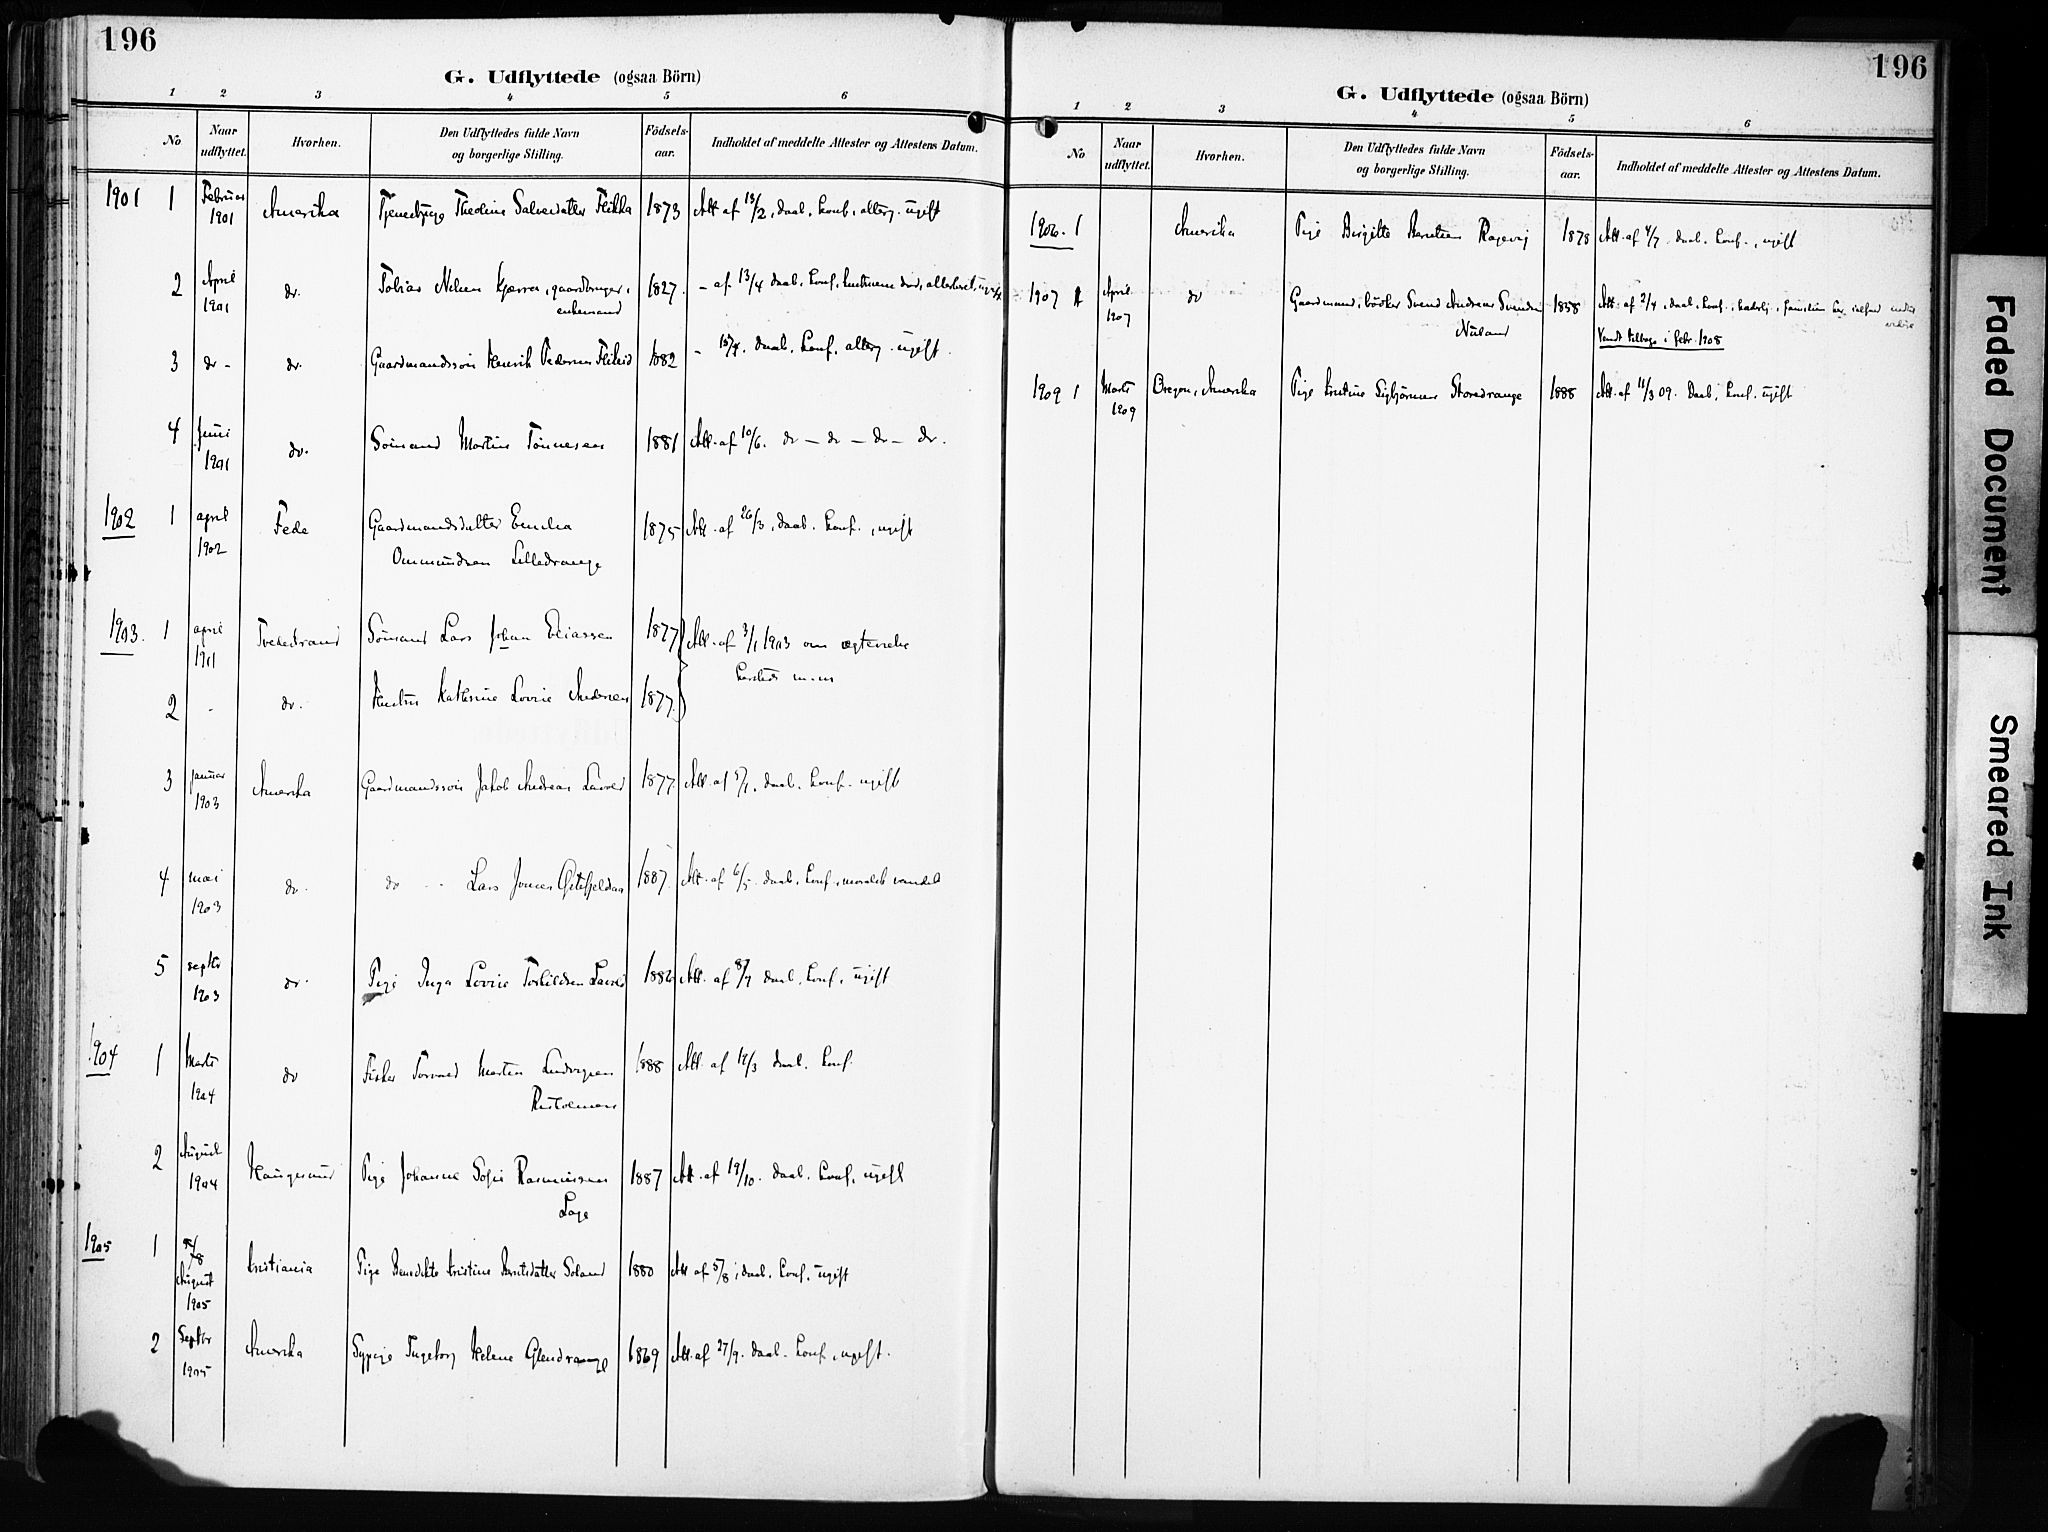 196
G. Udflyttede (ogsaa Börn)
1 2 3 4 5 6
No Naar udflyttet. Hvorhen. Den Udflyttedes fulde Navn og borgerlige Stilling. Födsels-aar. Indholdet af meddelte Attester og Attestens Datum.
1901 1 Februar 1901 Amerika Tjenestpige Theoline Salvesdatter Flikka 1873 Att af 13/2, daab, konf, alterg. ugift
2 April 1901 do. Tobias Nilsen Kjørra, gaardbruger, 1827. - af 13/4 daab, konf, hustruens død,
enkemand
3 do - do. Gaardmandssøn Henrik Pedersen 1882 - daab. konf, alterg. ugift.
4 Juni 1901 do. Sømand Martin Tønnesen 1881 Att. af 10/6. do - do - do - do.
1902 1 april 1902 Fede Gaardmandsdatter Emilia 1875 Att. af 26/3, daab. konf., ugift
Ommundsen Lilledrange
1903. 1 april 1911 Tvedestrand Sømand Lars Johan Eliassen 1877 Att. af 3/1 1903 om ægteviede
2 - do. Hustru Kathrine Lovise Andersen 1877 m.m
3 januar 1903 Amerika Gaardmandssøn Jakob Andreas 1877. Att. af daab. konf. ugift
4 mai 1903 do. do - - Lars Jonsen 1887. Att. af 6/5. daab, konf, moralsk vandel
5 septbr 1903 do. Pige Inga Lovise Torkildsen 1882 Att. af daab, konf, ugift
1904 1 Marts 1904 do Fisker Torvald Martin Ludvigsen 1888 Att. af daab. konf.
2 August 1904 Haugesund Pige Johanne Sofie Rasmussen 1887 Att. af 19/10. daab. konf, ugift
1905 1 August 1905 Kristiania Pige Benedikte Kristine Berntsdatter 1880 Att af 5/8, daab, konf, ugift
2 Septbr 1905 Amerika Sypige Ingeborg Helene Glendrange 1869 Att. af 27/9. daab. konf, ugift.
196
G. Udflyttede (ogsaa Börn)
1 2 3 4 5 6
No Naar udflyttet. Hvorhen. Den Udflyttedes fulde Navn og borgerlige Stilling. Födsels-aar. Indholdet af meddelte Attester og Attestens Datum.
1906. 1 Amerika Pige Birgitte Berntsen 1878 Att. af 4/7. daab. konf., ugift
1907 1 April 1907 do Gaardmand, Svend Andreas Svendsen 1858 Att. af 2/4, daab, konf.,
Nuland
Vendt tilbage i febr. 1908
1909 1 Marts 1909 Oregon, Amerika Pige Kristine Sigbjørnsen Storedrange 1888 Att. af 11/3 09. Daab, konf. ugift
Faded Document
Smeared Ink